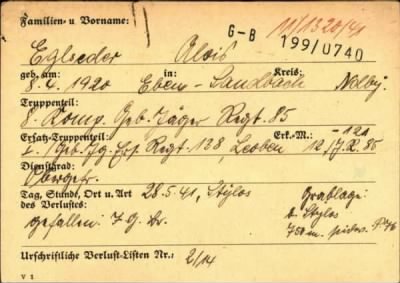 Familien- u Vorname:
G-B 11/1320/41
199/0740
Eglseder Alois
geb. am: in: Kreis:
8.4.1920 Eben-Sandbach
Truppenteil:
8. Komp. Geb. Jäger Regt. 85
Ersatz-Truppenteil: Erk.-M.: -121
Geb. Jg. Ers. Regt. 138, Leoben 12./J.R. 85
Dienstgrad:
Obergefr.
Tag, Stunde, Ort u. Art 28.5.41, Stylos Grablage:
des Verlustes: b. Stylos
gefallen: 750 m
Urschriftliche Verlust-Listen Nr.: 2/14
V 1